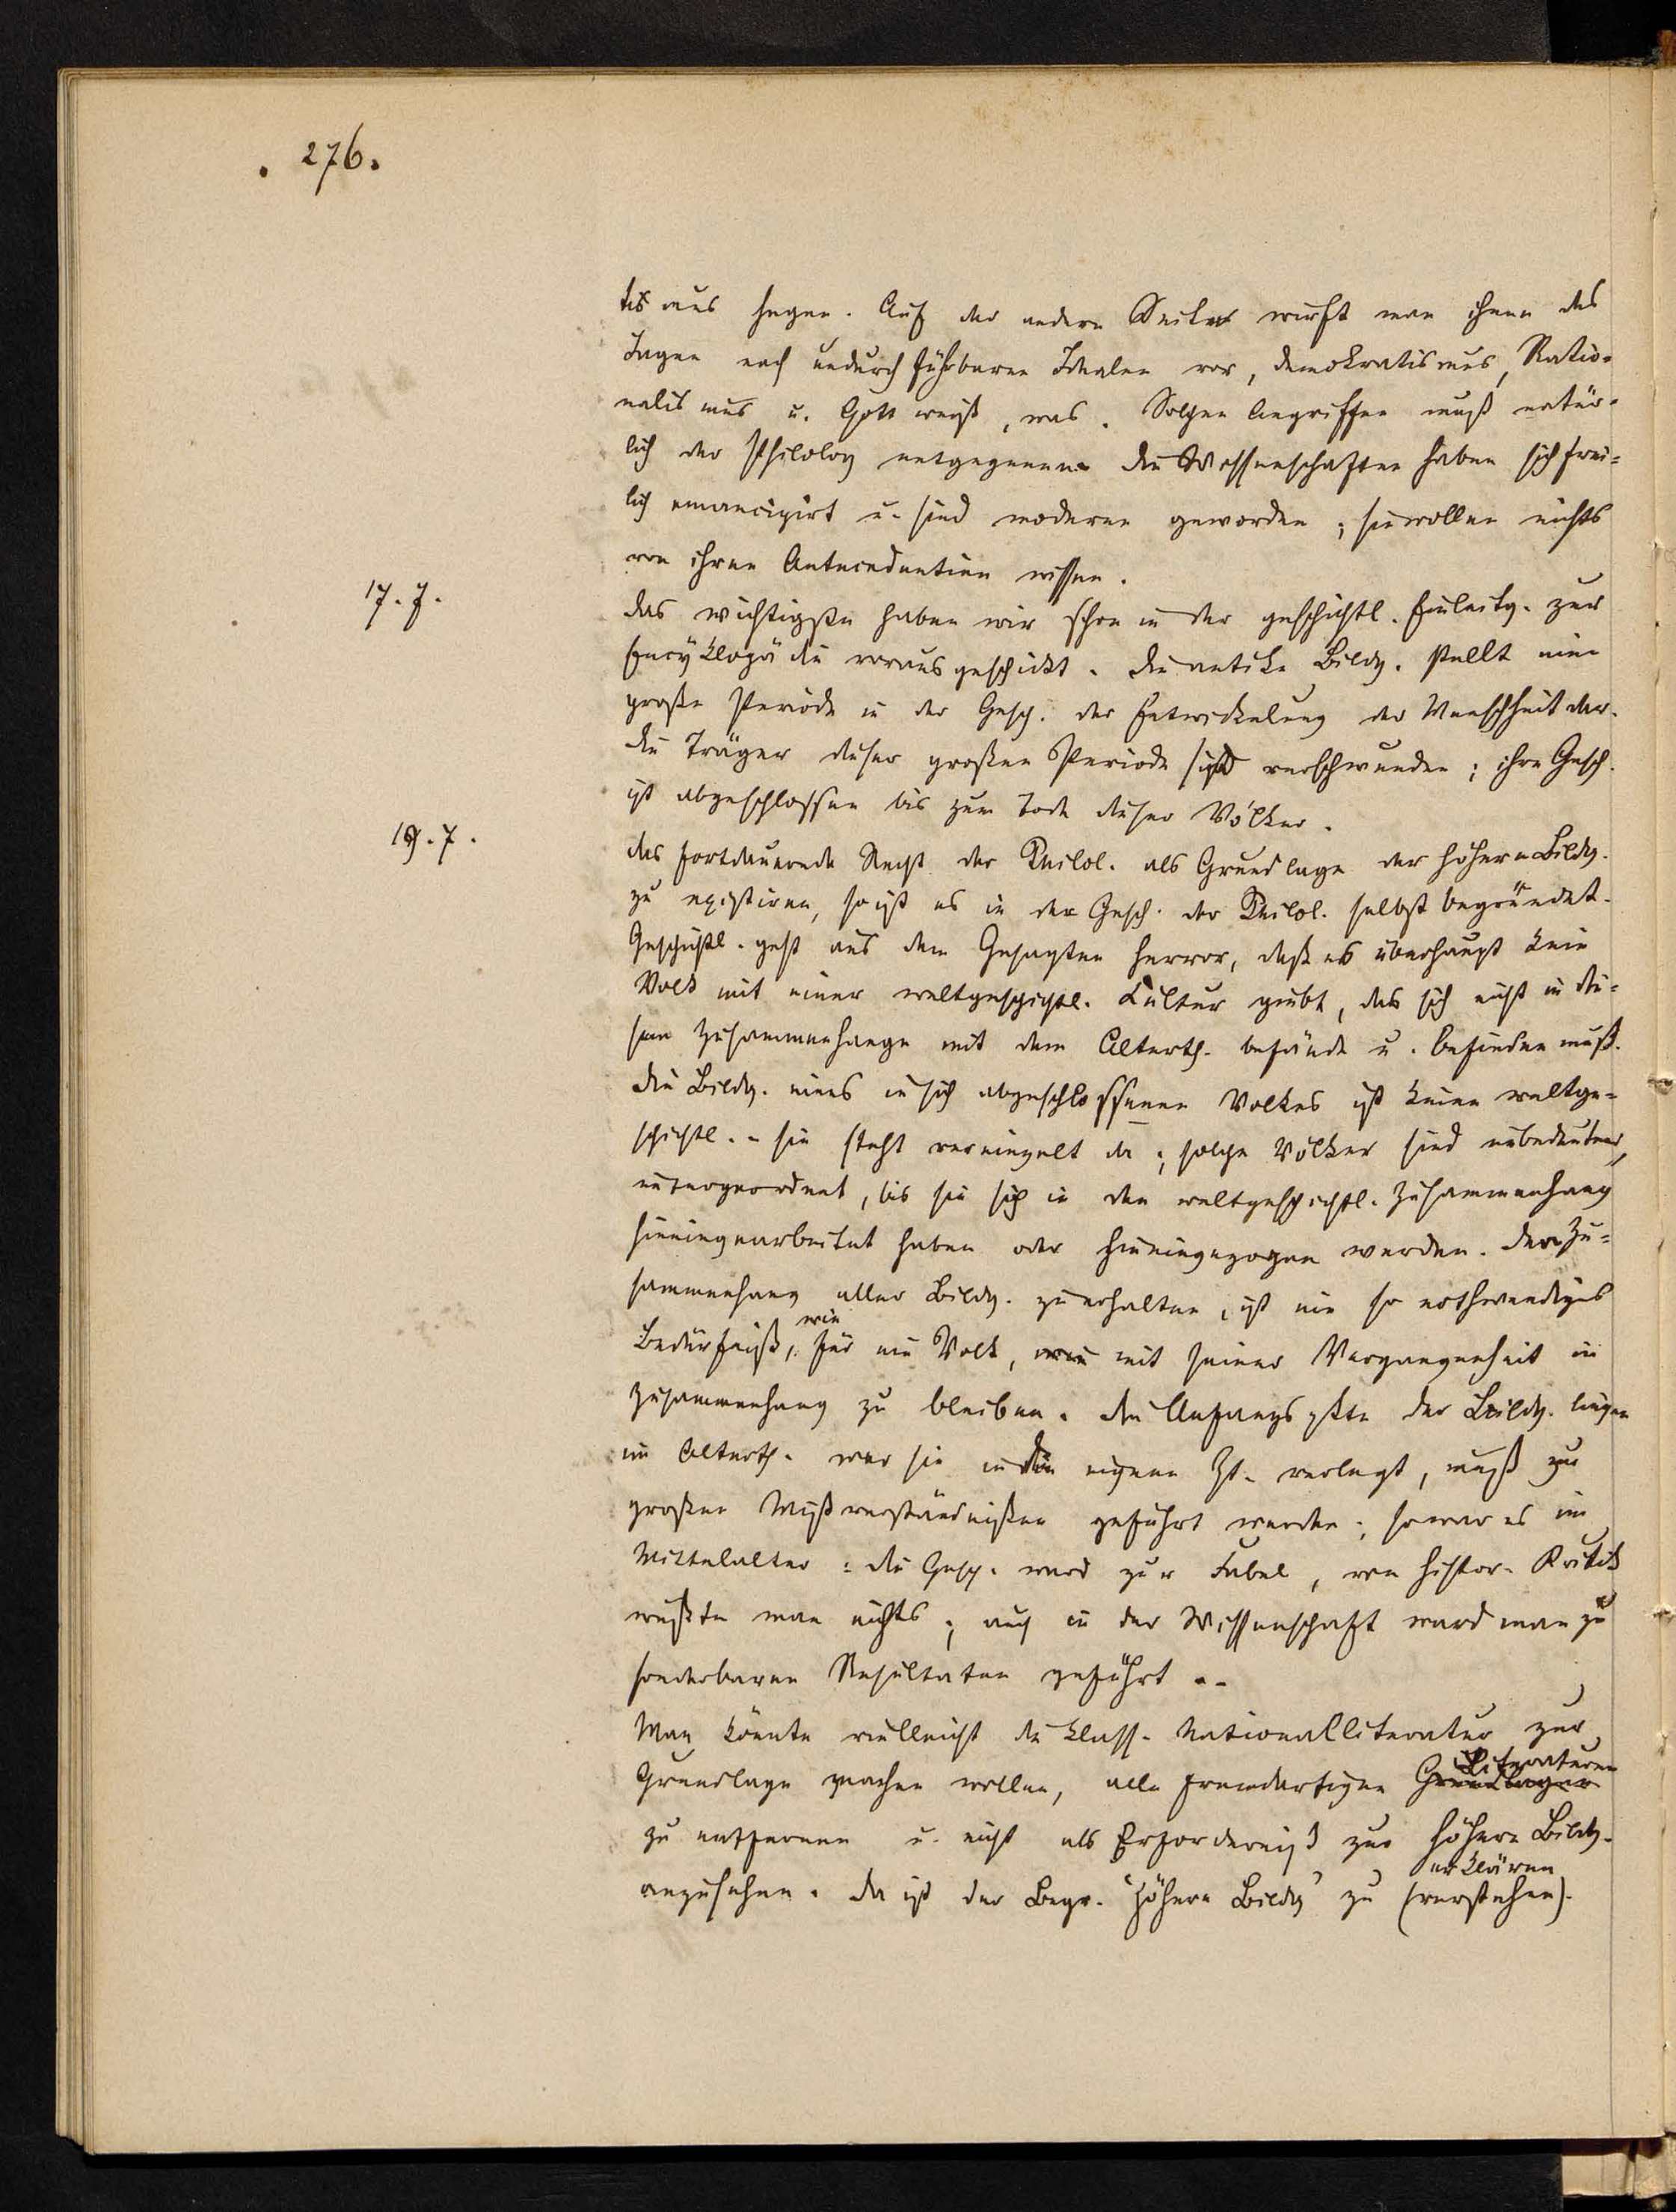 . 276.
tismus hegen. Auf der andern Seite wirft man ihnen das
Jagen nach undurchführbaren Idealen vor, Demokratismus, Ratio-
nalismus u. Gott weiß, was. Solchen Angriffen muß natür-
lich der Philolog entgegnen. Die Wissenschaften haben sich frei-
lich emancipirt u. sind modern geworden; sie wollen nichts
von ihren Antecedentien wissen.
17. 7.
Das wichtigste haben wir schon in der geschichtl. Einleitg. zur
Encyklopädie vorausgeschickt. Die antike Bildg. stellt eine
große Periode in der Gesch. der Entwickelung der Menschheit dar.
Die Träger dieser großen Periode sind verschwunden; ihre Gesch.
ist abgeschlossen bis zum Tode dieser Völker.
19. 7.
Das fortdauernde Recht der Philol. als Grundlage der höhern Bildg.
zu existiren, so ist es in der Gesch. der Philol. selbst begründet.
Geschichtl. geht aus dem Gesagten hervor, daß es überhaupt kein
Volk mit einer weltgeschichtl. Kultur giebt, das sich nicht in die-
sem Zusammenhange mit dem Alterth. befände u. befinden muß.
Die Bildg. eines in sich abgeschlossenen Volkes ist keine weltge-
schichtl. - sie steht vereinzelt da; solche Völker sind unbedeutend,
untergeordnet, bis sie sich in den weltgeschichtl. Zusammenhang
hineingearbeitet haben oder hineingezogen werden. Den Zu-
sammenhang aller Bildg. zu erhalten, ist ein so nothwendiges
Bedürfniß, wie für ein Volk, mit seiner Vergangenheit in
Zusammenhang zu bleiben. Die Anfangspkte der Bildg. liegen
im Alterth. wer sie in die eigene Zt. verlegt, muß zu
großen Mißverständnißen geführt werden; so war es im
Mittelalter: die Gesch. ward zur Fabel, von histor. Kritik
wußte man nichts; auch in der Wissenschaft ward man zu
sonderbaren Resultaten geführt. -
Man könnte vielleicht die klass. Nationalliteratur zur
Grundlage machen wollen, alle fremdartigen Grundlagen Literaturen
zu entfernen u. nicht als Erforderniß zur höhern Bildg.
anzusehen. Da ist der Begr. "höhere Bildg" zu (verstehen) erklären.